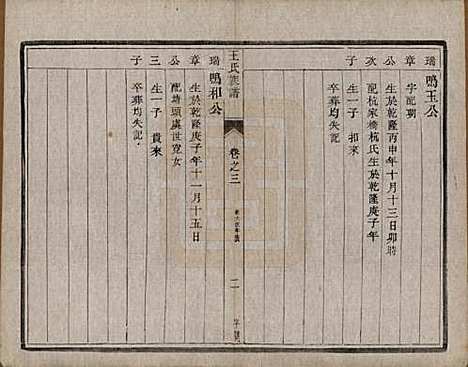 瑞 鳴玉公
章 字配朝
公 生於乾隆丙申年十月十三日卯時
次 配杭家橋杭氏生於乾隆庚子年
子 生一子 扣來
卒葬均失記
王氏族譜
卷之三
二
瑞 鳴和公
章 生於乾隆庚子年十一月十五日
公 配塘頭虞世寬女
三 生一子 貴來
子 卒葬均失記